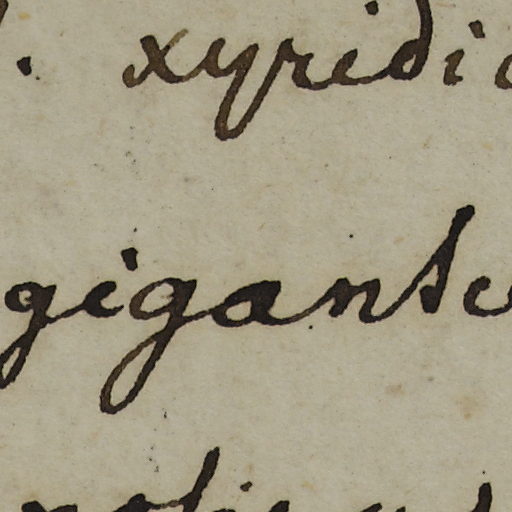 . xyridi
gigante